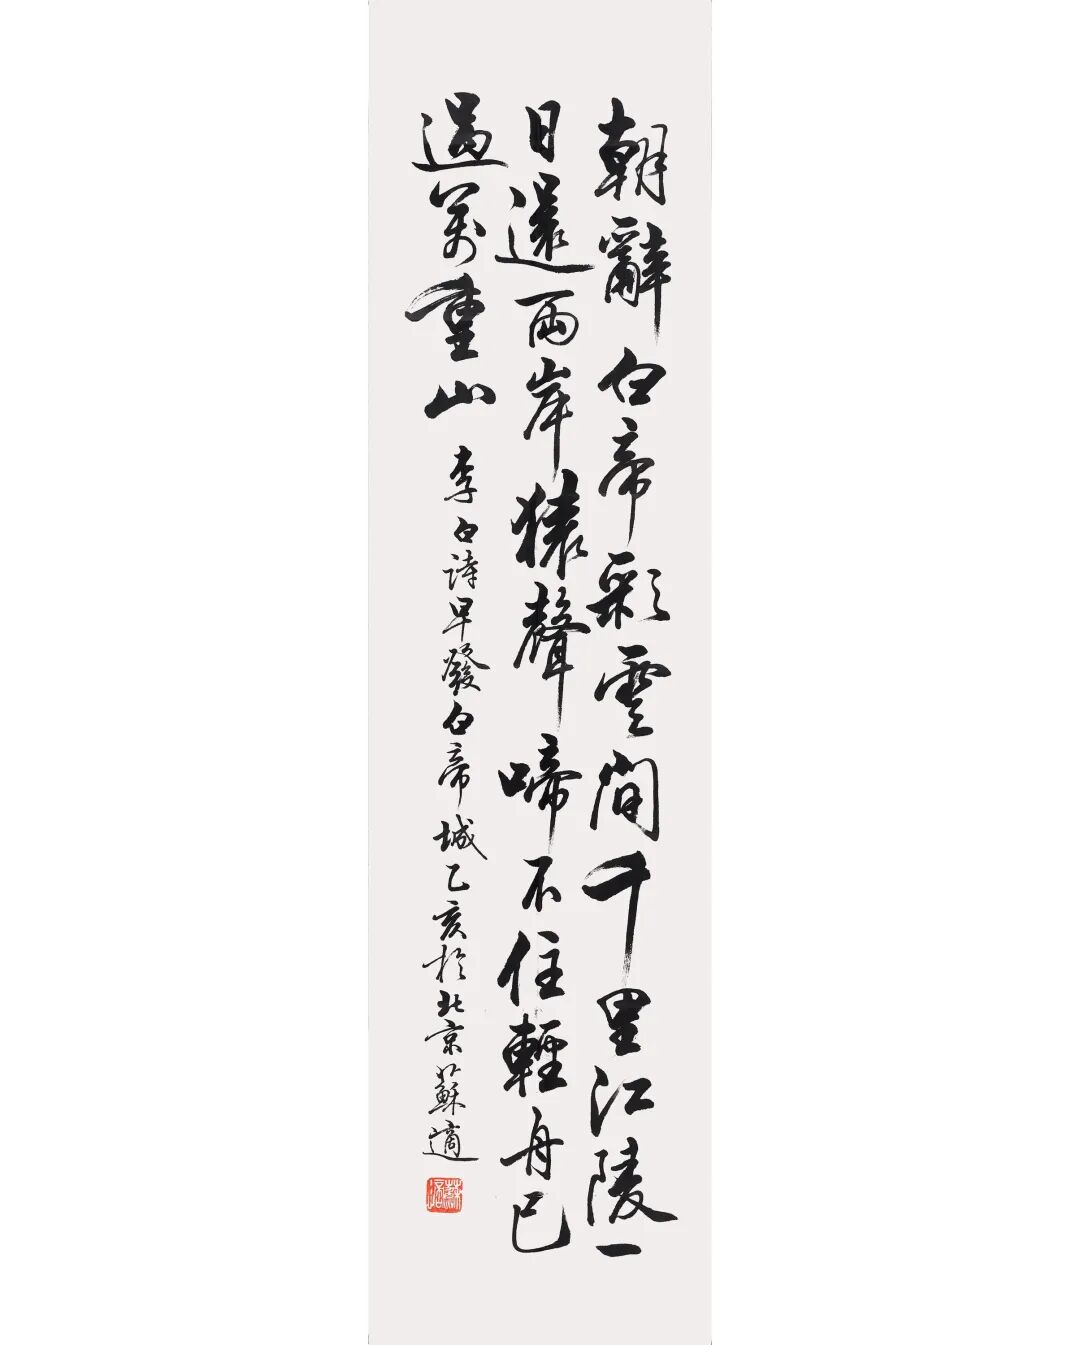 朝辭白帝彩雲間千里江陵一
日還兩岸猿聲啼不住輕舟已
過萬重山
李白詩早發白帝城乙亥於北京蘇適
蘇適